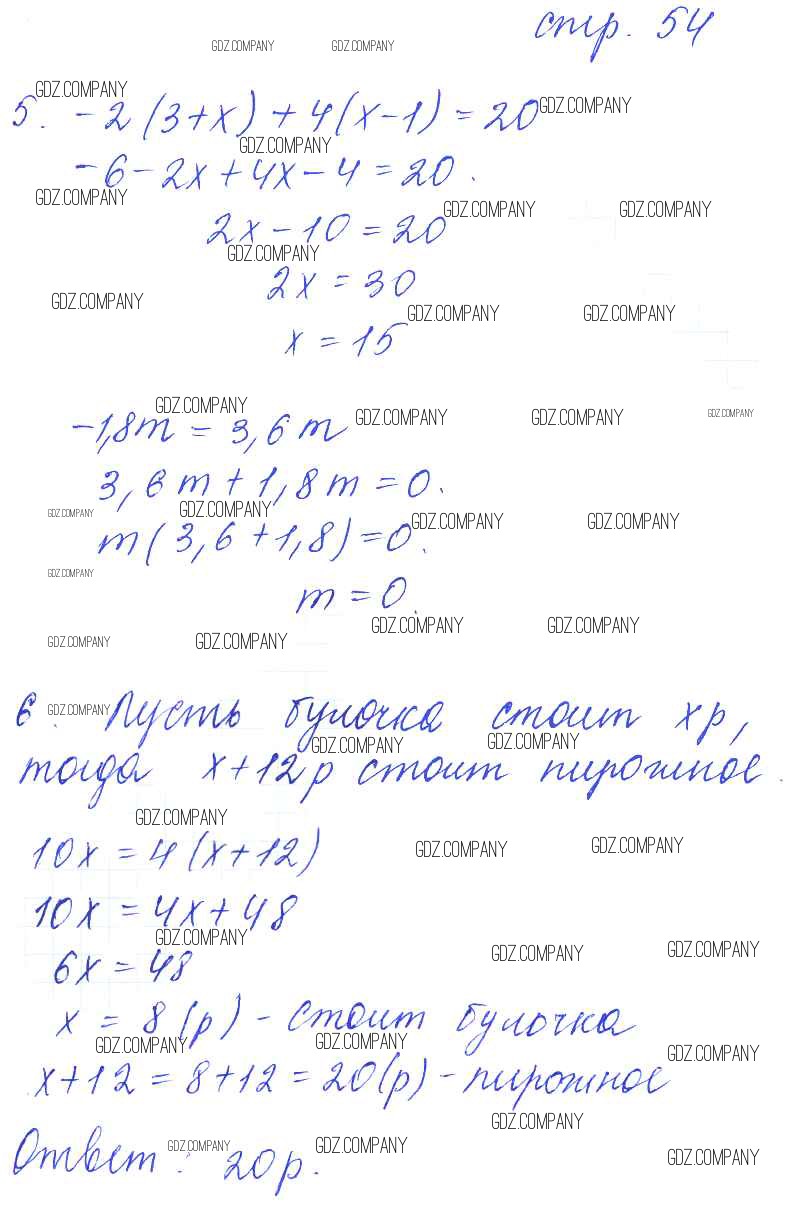 стр. 54
GDZ.COMPANY GDZ.COMPANY
GDZ.COMPANY
5. -2(3+x)+4(x-1)=20 GDZ.COMPANY
GDZ.COMPANY
-6-2x+4x-4=20.
GDZ.COMPANY
GDZ.COMPANY GDZ.COMPANY
2x-10=20
GDZ.COMPANY
2x=30
GDZ.COMPANY
GDZ.COMPANY GDZ.COMPANY
x=15
GDZ.COMPANY
GDZ.COMPANY GDZ.COMPANY GDZ.COMPANY
-1,8m=3,6m
3,6m+1,8m=0.
GDZ.COMPANY GDZ.COMPANY
GDZ.COMPANY GDZ.COMPANY
m(3,6+1,8)=0.
GDZ.COMPANY
m=0.
GDZ.COMPANY GDZ.COMPANY
GDZ.COMPANY GDZ.COMPANY
6. GDZ.COMPANY Пусть булочка стоит xр,
GDZ.COMPANY GDZ.COMPANY
тогда x+12р стоит пирожное.
GDZ.COMPANY
10x=4(x+12)
GDZ.COMPANY GDZ.COMPANY
10x=4x+48
GDZ.COMPANY
GDZ.COMPANY GDZ.COMPANY
6x=48
x=8(р)-стоит булочка
GDZ.COMPANY GDZ.COMPANY
GDZ.COMPANY
x+12=8+12=20(р)-пирожное
GDZ.COMPANY
GDZ.COMPANY GDZ.COMPANY
Ответ: 20р.
GDZ.COMPANY